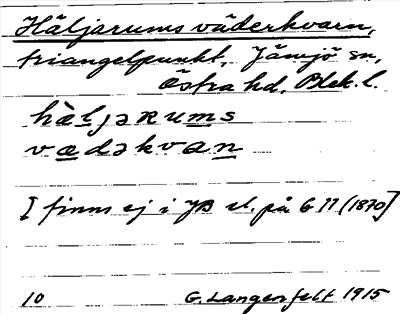 Häljarums väderkvarn,
triangelpunkt, Jämjö sn,
Östra hd. Blek. l.
hæ̀ljarums
vædəkvan
[finns ej i JB el. på G 11 (1870)]
10 G. Langenfelt 1915